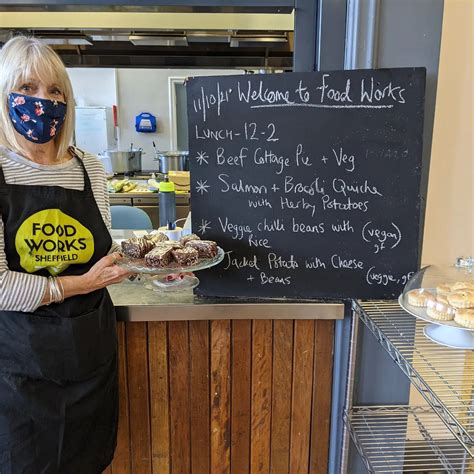 11/10/21 Welcome to Food Works
LUNCH - 12-2
* Beef Cottage Pie + Veg
* Salmon + Brocoli Quiche
with Herby Potatoes
* Veggie chilli beans with (vegan
Rice gf)
* Jacket Potato with Cheese
+ Beans (veggie, gf)
FOOD
WORKS
SHEFFIELD